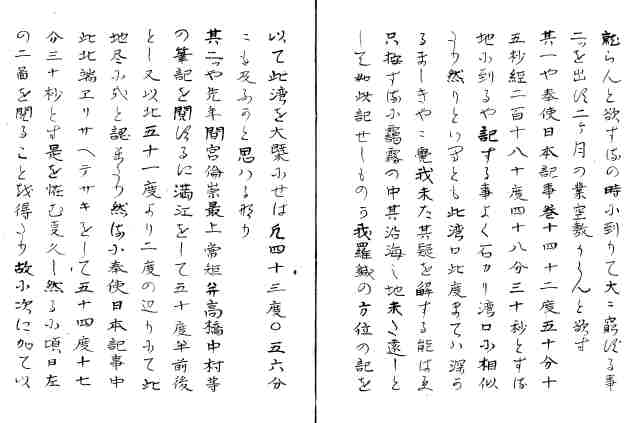 能らんと欲するの時に到りて大に窮する事
二つを出す二ヶ月の業空敷うらんと欲す
其一や奉使日本記事巻十四十二度五十分十
五秒経二百十八十度四十八分三十秒とする
地に到るや記する事よく石カリ湾口に相似
たり然りといへとも此湾口北度まては深う
るましきやに覚我未た其疑を解する能はす
只極するに靄露の中其沿海之地未た遠しと
して如此記せしものう我羅鍼の方位の記を
以て此湾を大槩にせは凡四十三度〇五六分
にも及ふうと思はる那り
其二や先年間宮倫崇最上常矩并高橋中村等
の筆記を閲するに満江をして五十度半前後
とし又以北五十一度より二度の辺りにて此
地尽に尽と認まう然るに奉使日本記事中
此北端ヱリサヘテサキをして五十四度十七
分三十秒とす是を怪む夏久し然るに頃日左
の二面を閲ること越得たり故に次に加て以